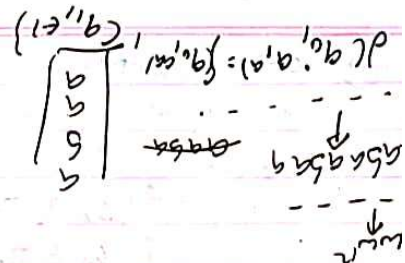 wwᴿ
abaaba
a
b
a
a
δ(q₀, a, a) = {(q₀, aa), (q₁, ε)}